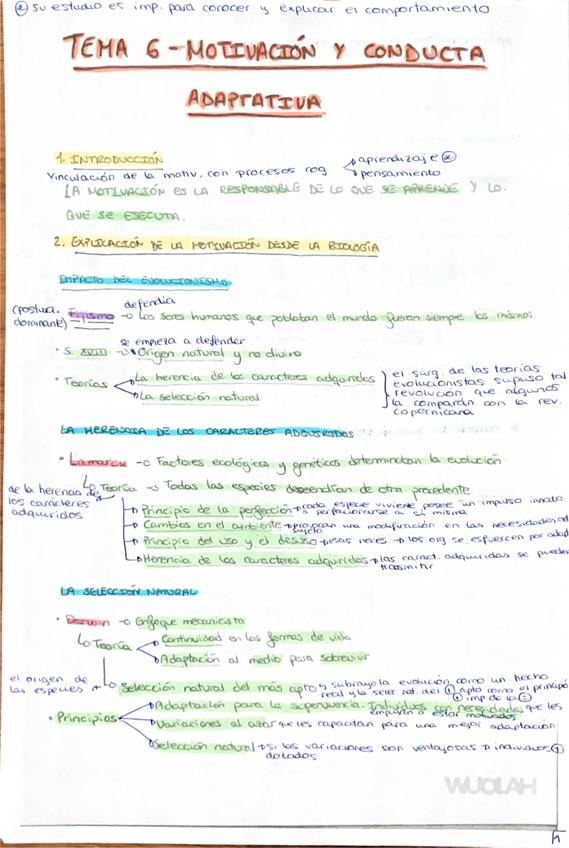 ② Su estudio es imp. para conocer y explicar el comportamiento
TEMA 6 - MOTIVACIÓN Y CONDUCTA
ADAPTATIVA
1. INTRODUCCIÓN
Vinculación de la motiv. con procesos cog
aprendizaje ②
pensamiento
LA MOTIVACIÓN ES LA RESPONSABLE DE LO QUE SE APRENDE Y LO
QUE SE EJECUTA.
2. EXPLICACIÓN DE LA MOTIVACIÓN DESDE LA BIOLOGÍA
IMPACTO DEL EVOLUCIONISMO
(postura dominante)
Fijismo → defendía Los seres humanos que poblaban el mundo fueron siempre los mismos.
se empieza a defender
· S. XVIII → Origen natural y no divino
· Teorías
La herencia de los caracteres adquiridos
La selección natural
el surg. de las teorías
evolucionistas supuso tal
revolución que algunos
la comparan con la rev.
copernicana
LA HERENCIA DE LOS CARACTERES ADQUIRIDOS
· Lamarck → Factores ecológicos y genéticos determinaban la evolución
↳ Teoría → Todas las especies descendían de otra precedente
de la herencia de
los caracteres
adquiridos
Principio de la perfección → cada especie viviente posee un impulso innato
a perfeccionarse a sí misma
Cambios en el ambiente → provocan una modificación en las necesidades del
sujeto
Principio del uso y el desuso → esas neces → los org se esfuercen por adap
Herencia de los caracteres adquiridos → las caract. adquiridas se pueden
transmitir
LA SELECCIÓN NATURAL
· Darwin → Enfoque mecanicista
↳ Teoría
Continuidad en las formas de vida
Adaptación al medio para sobrevivir
el origen de
las especies
Selección natural del más apto → subrayó la evolución como un hecho
real y la selec nat. del ① apto como el principio
① imp de la
· Principios
Adaptación para la supervivencia. Individuos con necesidades que les
empujan a estar motivados
Variaciones al azar que les capacitan para una mejor adaptación
Selección natural → si las variaciones son ventajosas → individuos
dotados
WUOLAH